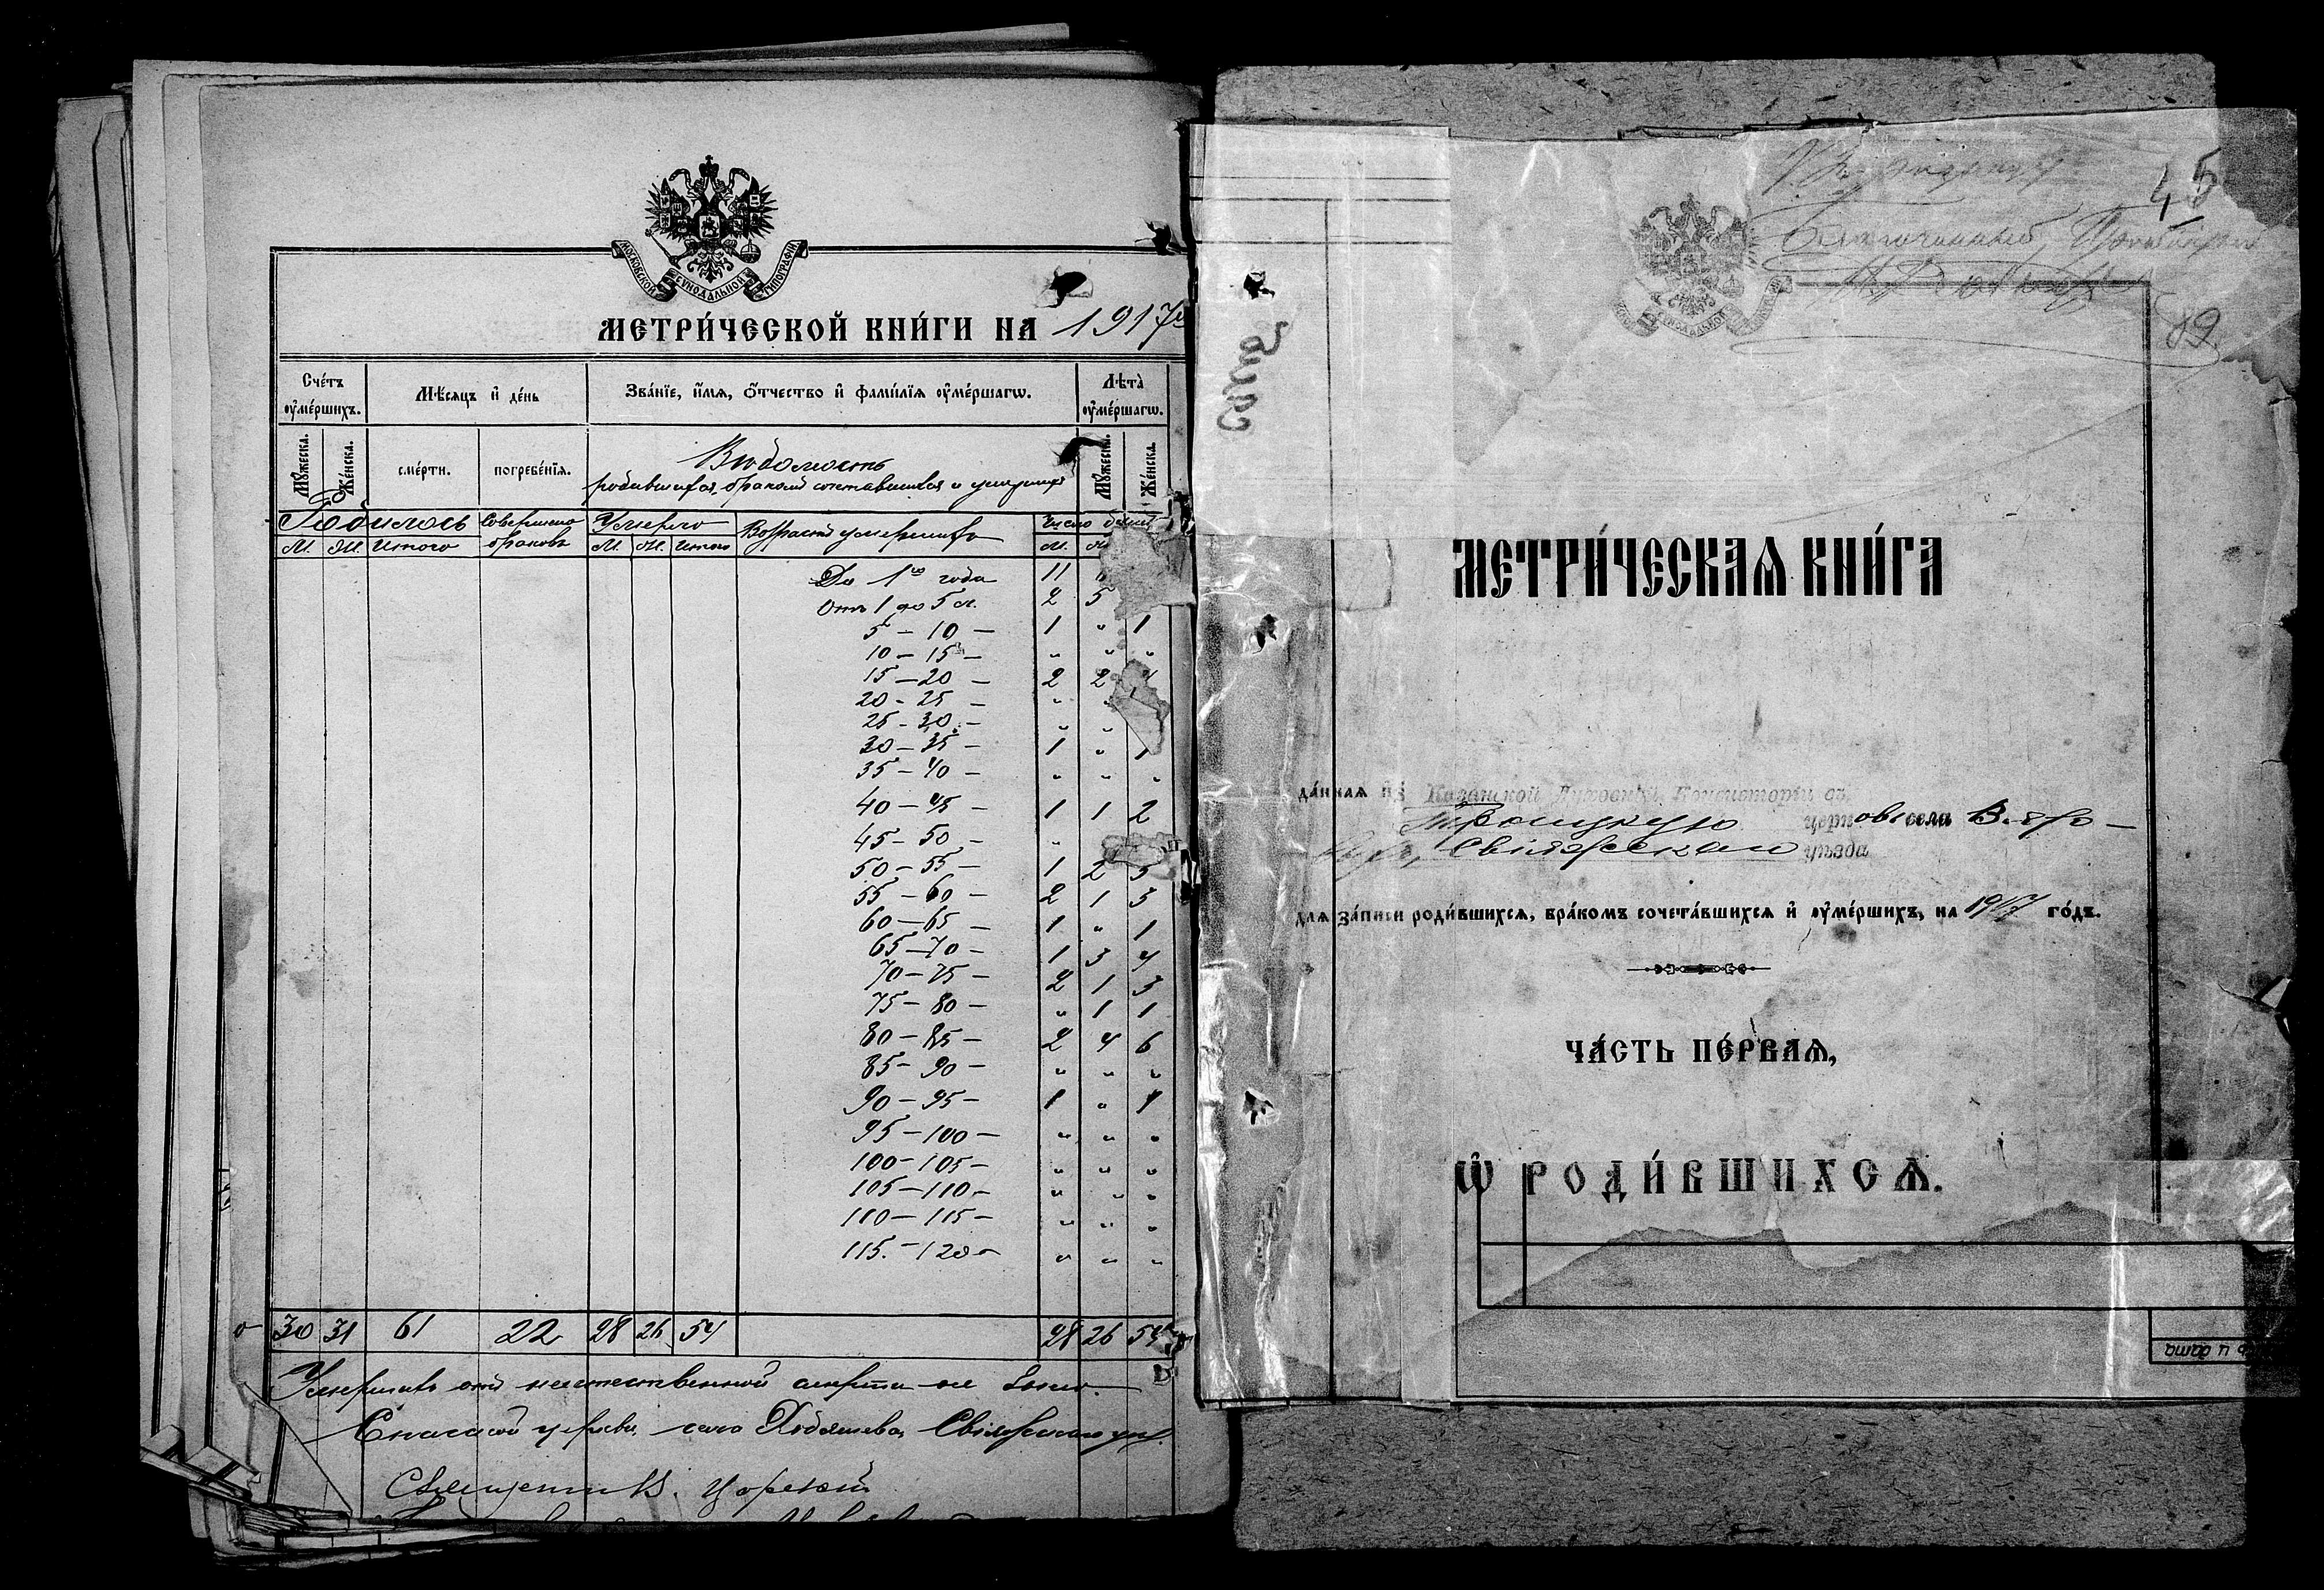 МОСКОВСКОЙ СѴНОДАЛЬНОЙ ТИПОГРАФІИ
МЕТРИ́ЧЕСКОЙ КНИ́ГИ НА 1917
Сче́тъ оу҆ме́ршихъ.
Мѣ́сяцъ и҆ де́нь
Зва́нїе, и҆́мѧ, ѻ҆́тчество и҆ фами́лїѧ оу҆ме́ршагѡ.
Лѣ́та̀ оу҆ме́ршагѡ.
Мꙋ́жеска.
Же́нска.
сме́рти.
погребе́нїѧ.
Вѣдомость
родившихся, бракомъ сочетавшихся и умершихъ
Мꙋ́жеска.
Же́нска.
Родилось
Совершено браковъ
Умерло
Возрастъ умершихъ
Число
М. Ж. Итого
М. Ж. Итого
М.
До 1го года 11
Отъ 1 до 5 л. 2 5
5 – 10 – 1 " 1
10 – 15 – " " "
15 – 20 – 2 2
20 – 25 – "
25 – 30 – " "
30 – 35 – 1 " 1
35 – 40 – " " "
40 – 45 – 1 1 2
45 – 50 – "
50 – 55 – 1 2 3
55 – 60 – 2 1 3
60 – 65 – 1 " 1
65 – 70 – 1 3 4
70 – 75 – 2 1 3
75 – 80 – " 1 1
80 – 85 – 2 4 6
85 – 90 – " " "
90 – 95 – 1 " 1
95 – 100 – " " "
100 – 105 – " " "
105 – 110 – " " "
110 – 115 – " " "
115. – 120 – " " "
30 31 61 22 28 26 54 28 26 54
Умершихъ отъ неестественной смерти не было.
Спасской церкви, села Хвдяшева, Свіяжскаго у.
Священникъ
45
89
МЕТРИ́ЧЕСКАѦ КНИ́ГА
да́ннаѧ и҆з̾ Казанской Духовной Консисторіи въ
Троицкую церковь села
Свіяжскаго уѣзда
для за́писи роди́вшихсѧ, бра́комъ сочета́вшихсѧ и҆ оу҆ме́ршихъ, на 1917 го́дъ.
ЧА́СТЬ ПЕ́РВАѦ,
Ѽ РОДИ́ВШИХСѦ.